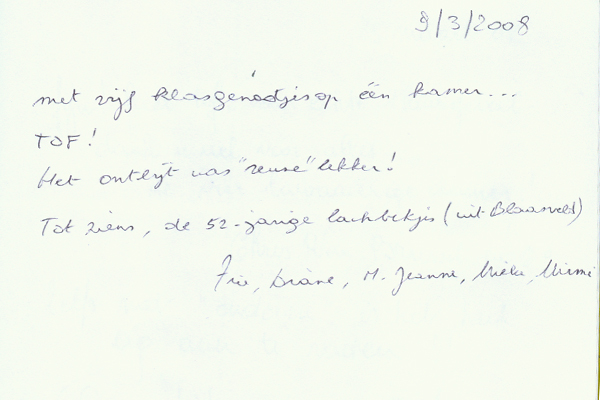 9/3/2008
met vijf klasgenootjes op één kamer...
TOF!
Het ontbijt was "reuze" lekker!
Tot ziens, de 52-jarige lachbekjes (uit Blaasveld)
Fia, Diane, M. Jeanne, Mieke, Mimi